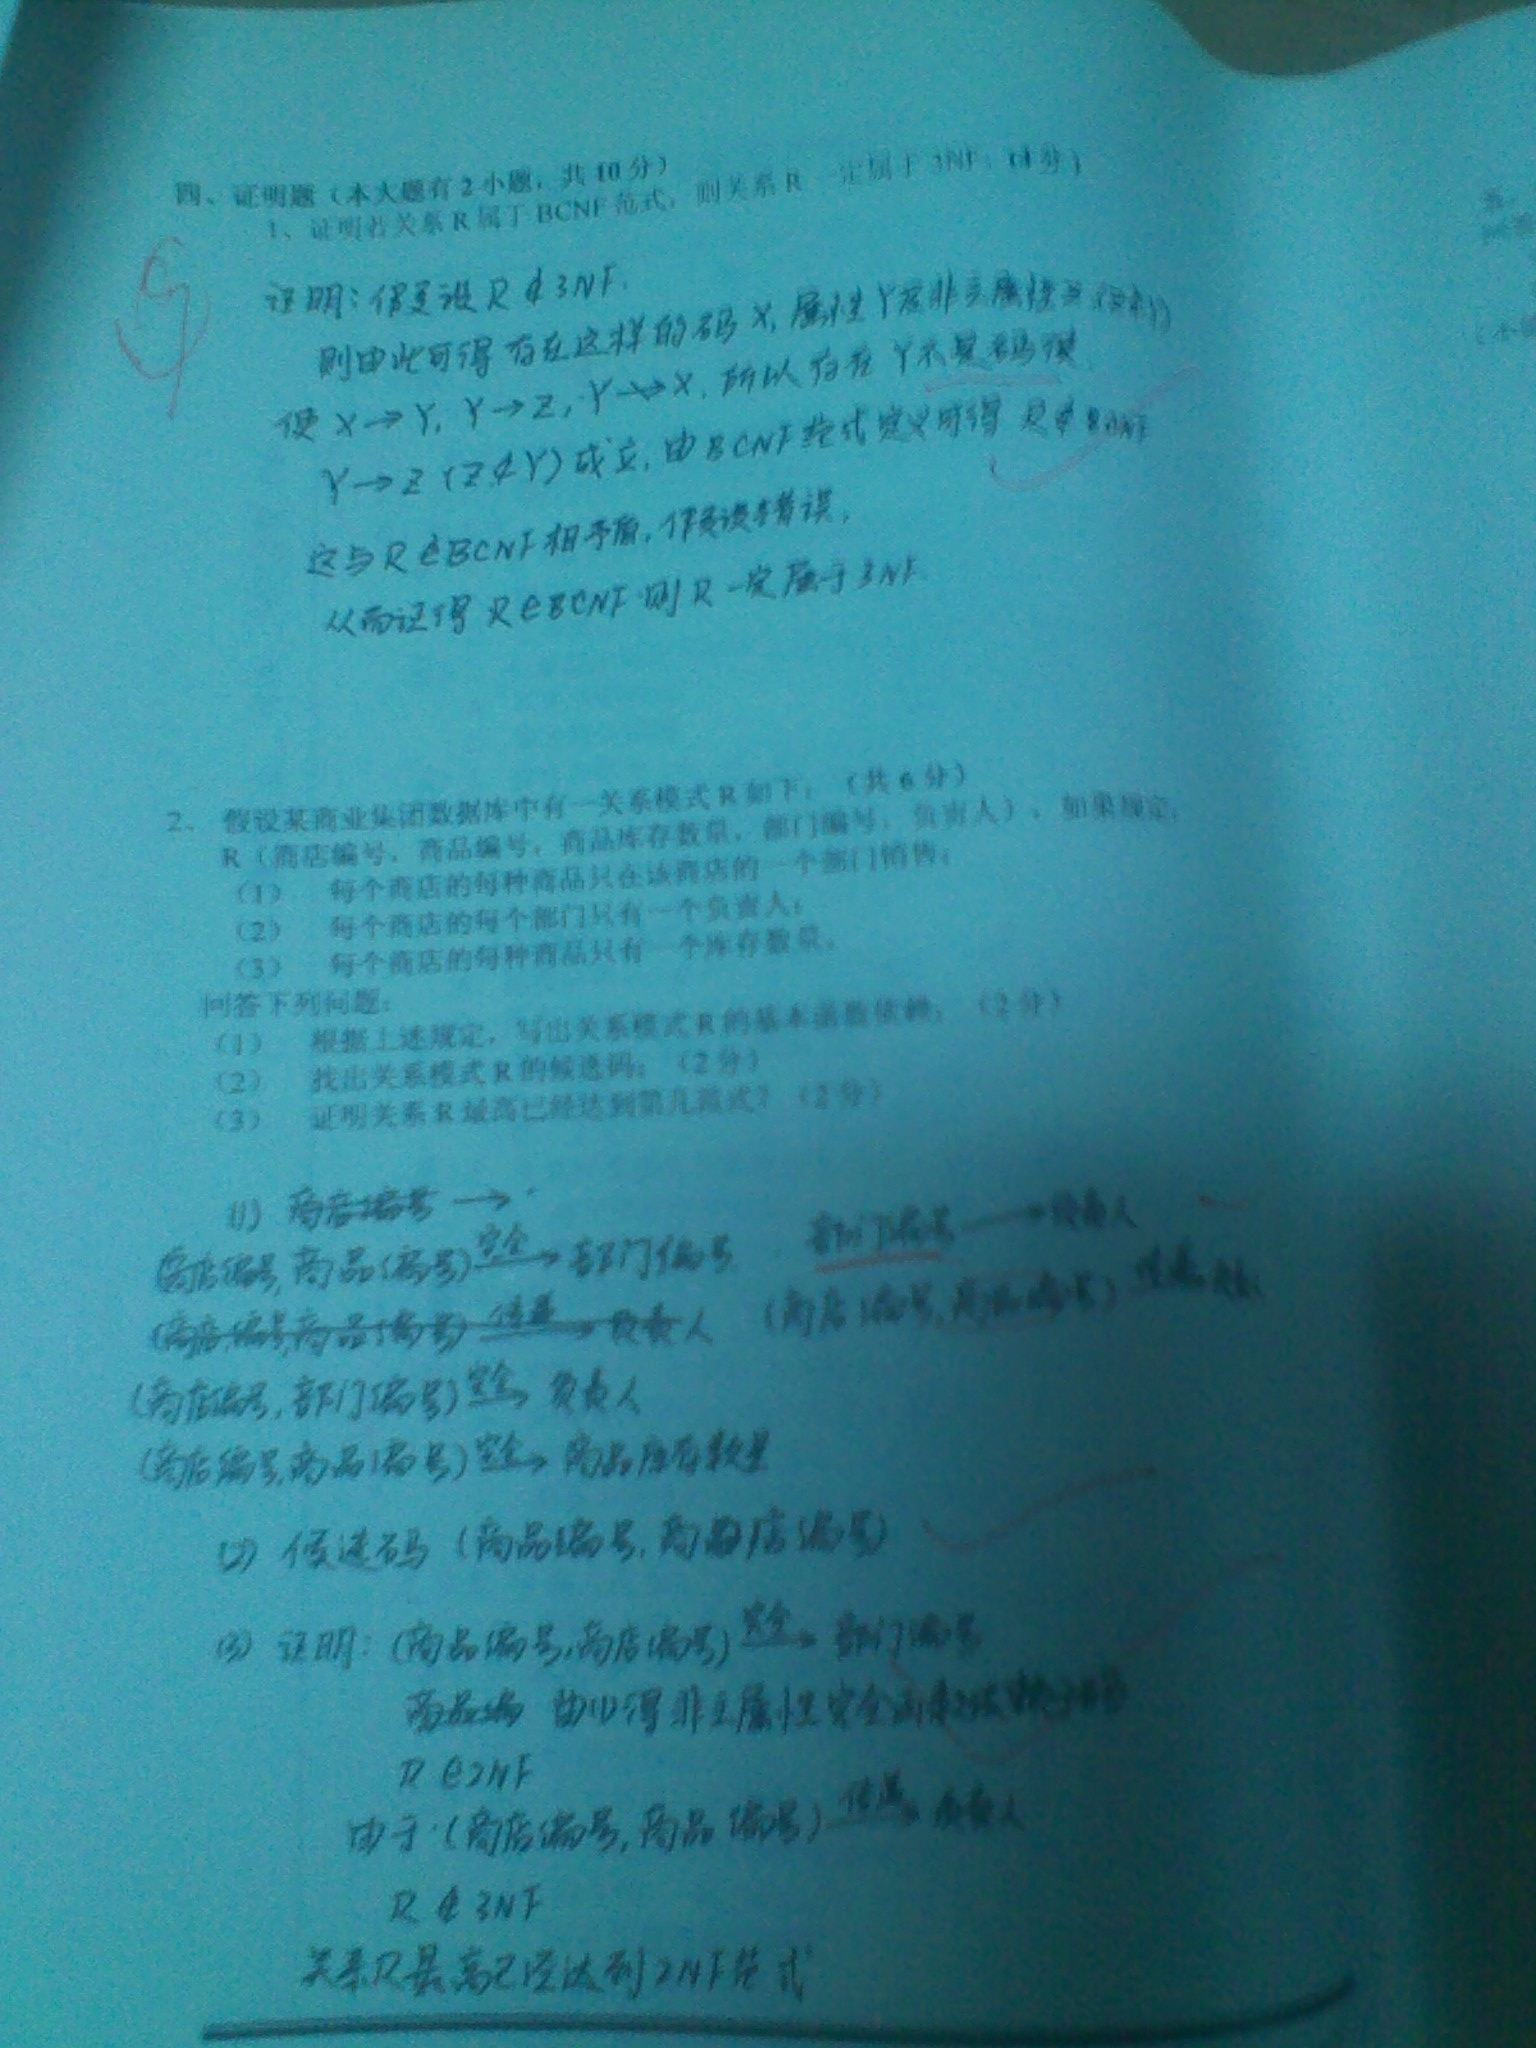 四、证明题（本大题有2小题，共10分）
1、证明若关系R属于BCNF范式，则关系R一定属于3NF；（4分）
证明：假设设R∉3NF.
则由此可得存在这样的码X,属性Y及非主属性Z(Z⊄Y)
使X→Y, Y→Z, Y↛X, 所以存在Y不是码使
Y→Z (Z⊄Y)成立,由BCNF范式定义可得 R∉BCNF
这与R∈BCNF相矛盾,假设错误,
从而证得R∈BCNF则R一定属于3NF
2、假设某商业集团数据库中有一关系模式R如下：（共6分）
R（商店编号，商品编号，商品库存数量，部门编号，负责人），如果规定：
（1） 每个商店的每种商品只在该商店的一个部门销售；
（2） 每个商店的每个部门只有一个负责人；
（3） 每个商店的每种商品只有一个库存数量。
回答下列问题：
（1） 根据上述规定，写出关系模式R的基本函数依赖；（2分）
（2） 找出关系模式R的候选码；（2分）
（3） 证明关系R最高已经达到第几范式？（2分）
(1) 商店编号 →
(商店编号,商品编号) 完全→ 部门编号 部门编号 → 负责人
(商店编号,商品编号) 传递→ 负责人 (商店编号,商品编号) 传递
(商店编号,部门编号) 完全→ 负责人
(商店编号,商品编号) 完全→ 商品库存数量
(2) 候选码 (商品编号,商店编号)
(3) 证明：(商品编号,商店编号) 完全→ 部门编号
商品编 由(1)得非主属性完全函数依赖于
R∈2NF
由于(商店编号,商品编号) 传递→ 负责人
R∉3NF
关系R最高已经达到2NF范式